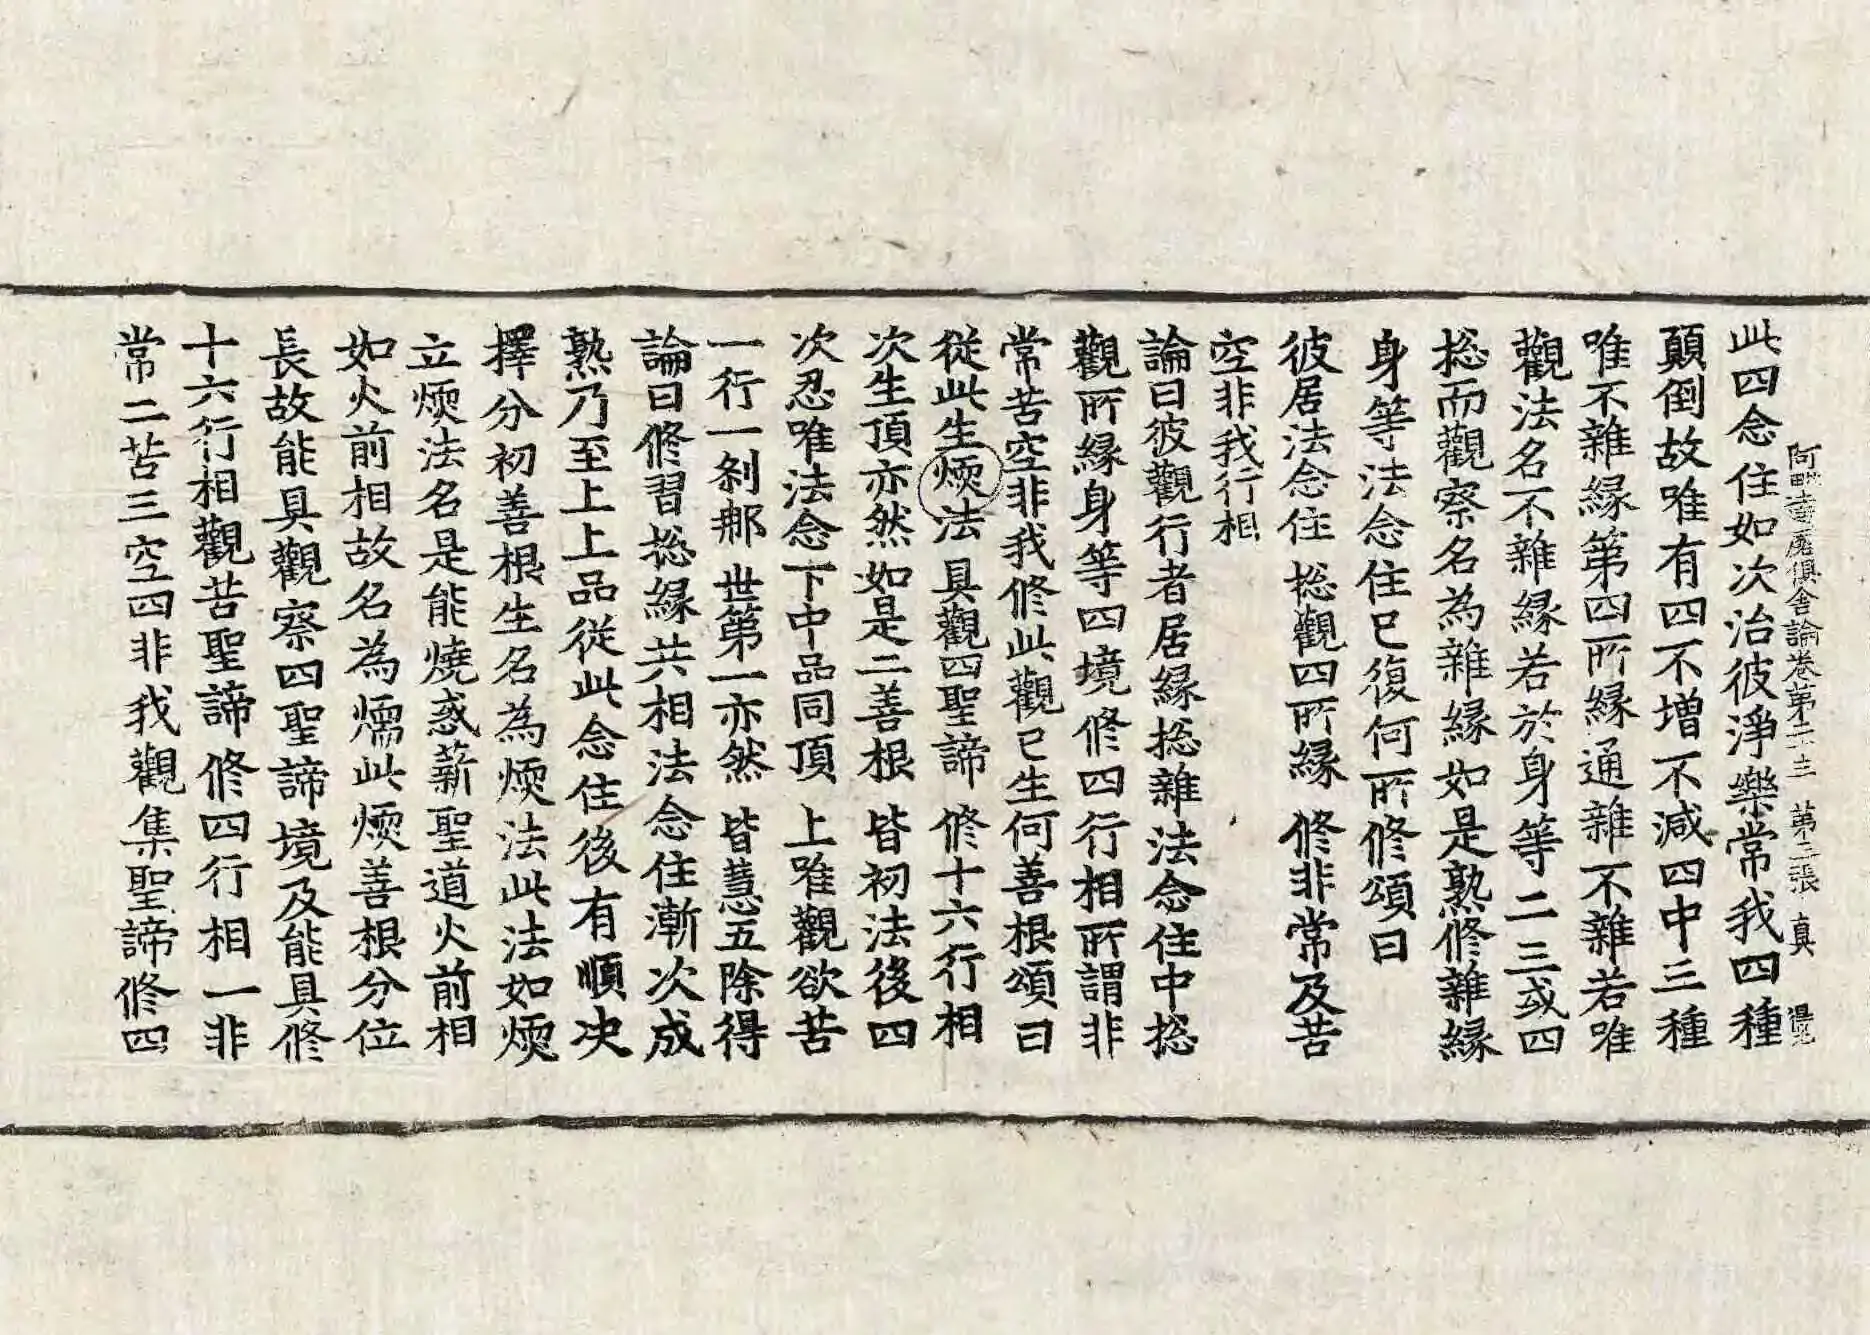 阿毗達磨俱舍論卷第二十三 第三張 真
此四念住如次治彼淨樂常我四種
顛倒故唯有四不增不減四中三種
唯不雜緣第四所緣通雜不雜若唯
觀法名不雜緣若於身等二三或四
捴而觀察名為雜緣如是熟修雜緣
身等法念住已復何所修頌曰
彼居法念住 捴觀四所緣 修非常及苦
空非我行相
論曰彼觀行者居緣捴雜法念住中捴
觀所緣身等四境修四行相所謂非
常苦空非我修此觀已生何善根頌曰
從此生煗法 具觀四聖諦 修十六行相
次生頂亦然如是二善根 皆初法後四
次忍唯法念下中品同頂 上唯觀欲苦
一行一剎那 世第一亦然 皆慧五除得
論曰修習捴緣共相法念住漸次成
熟乃至上上品從此念住後有順决
擇分初善根生名為煗法此法如煗
立煗法名是能燒惑薪聖道火前相
如火前相故名為煗此煗善根分位
長故能具觀察四聖諦境及能具修
十六行相觀苦聖諦修四行相一非
常二苦三空四非我觀集聖諦修四